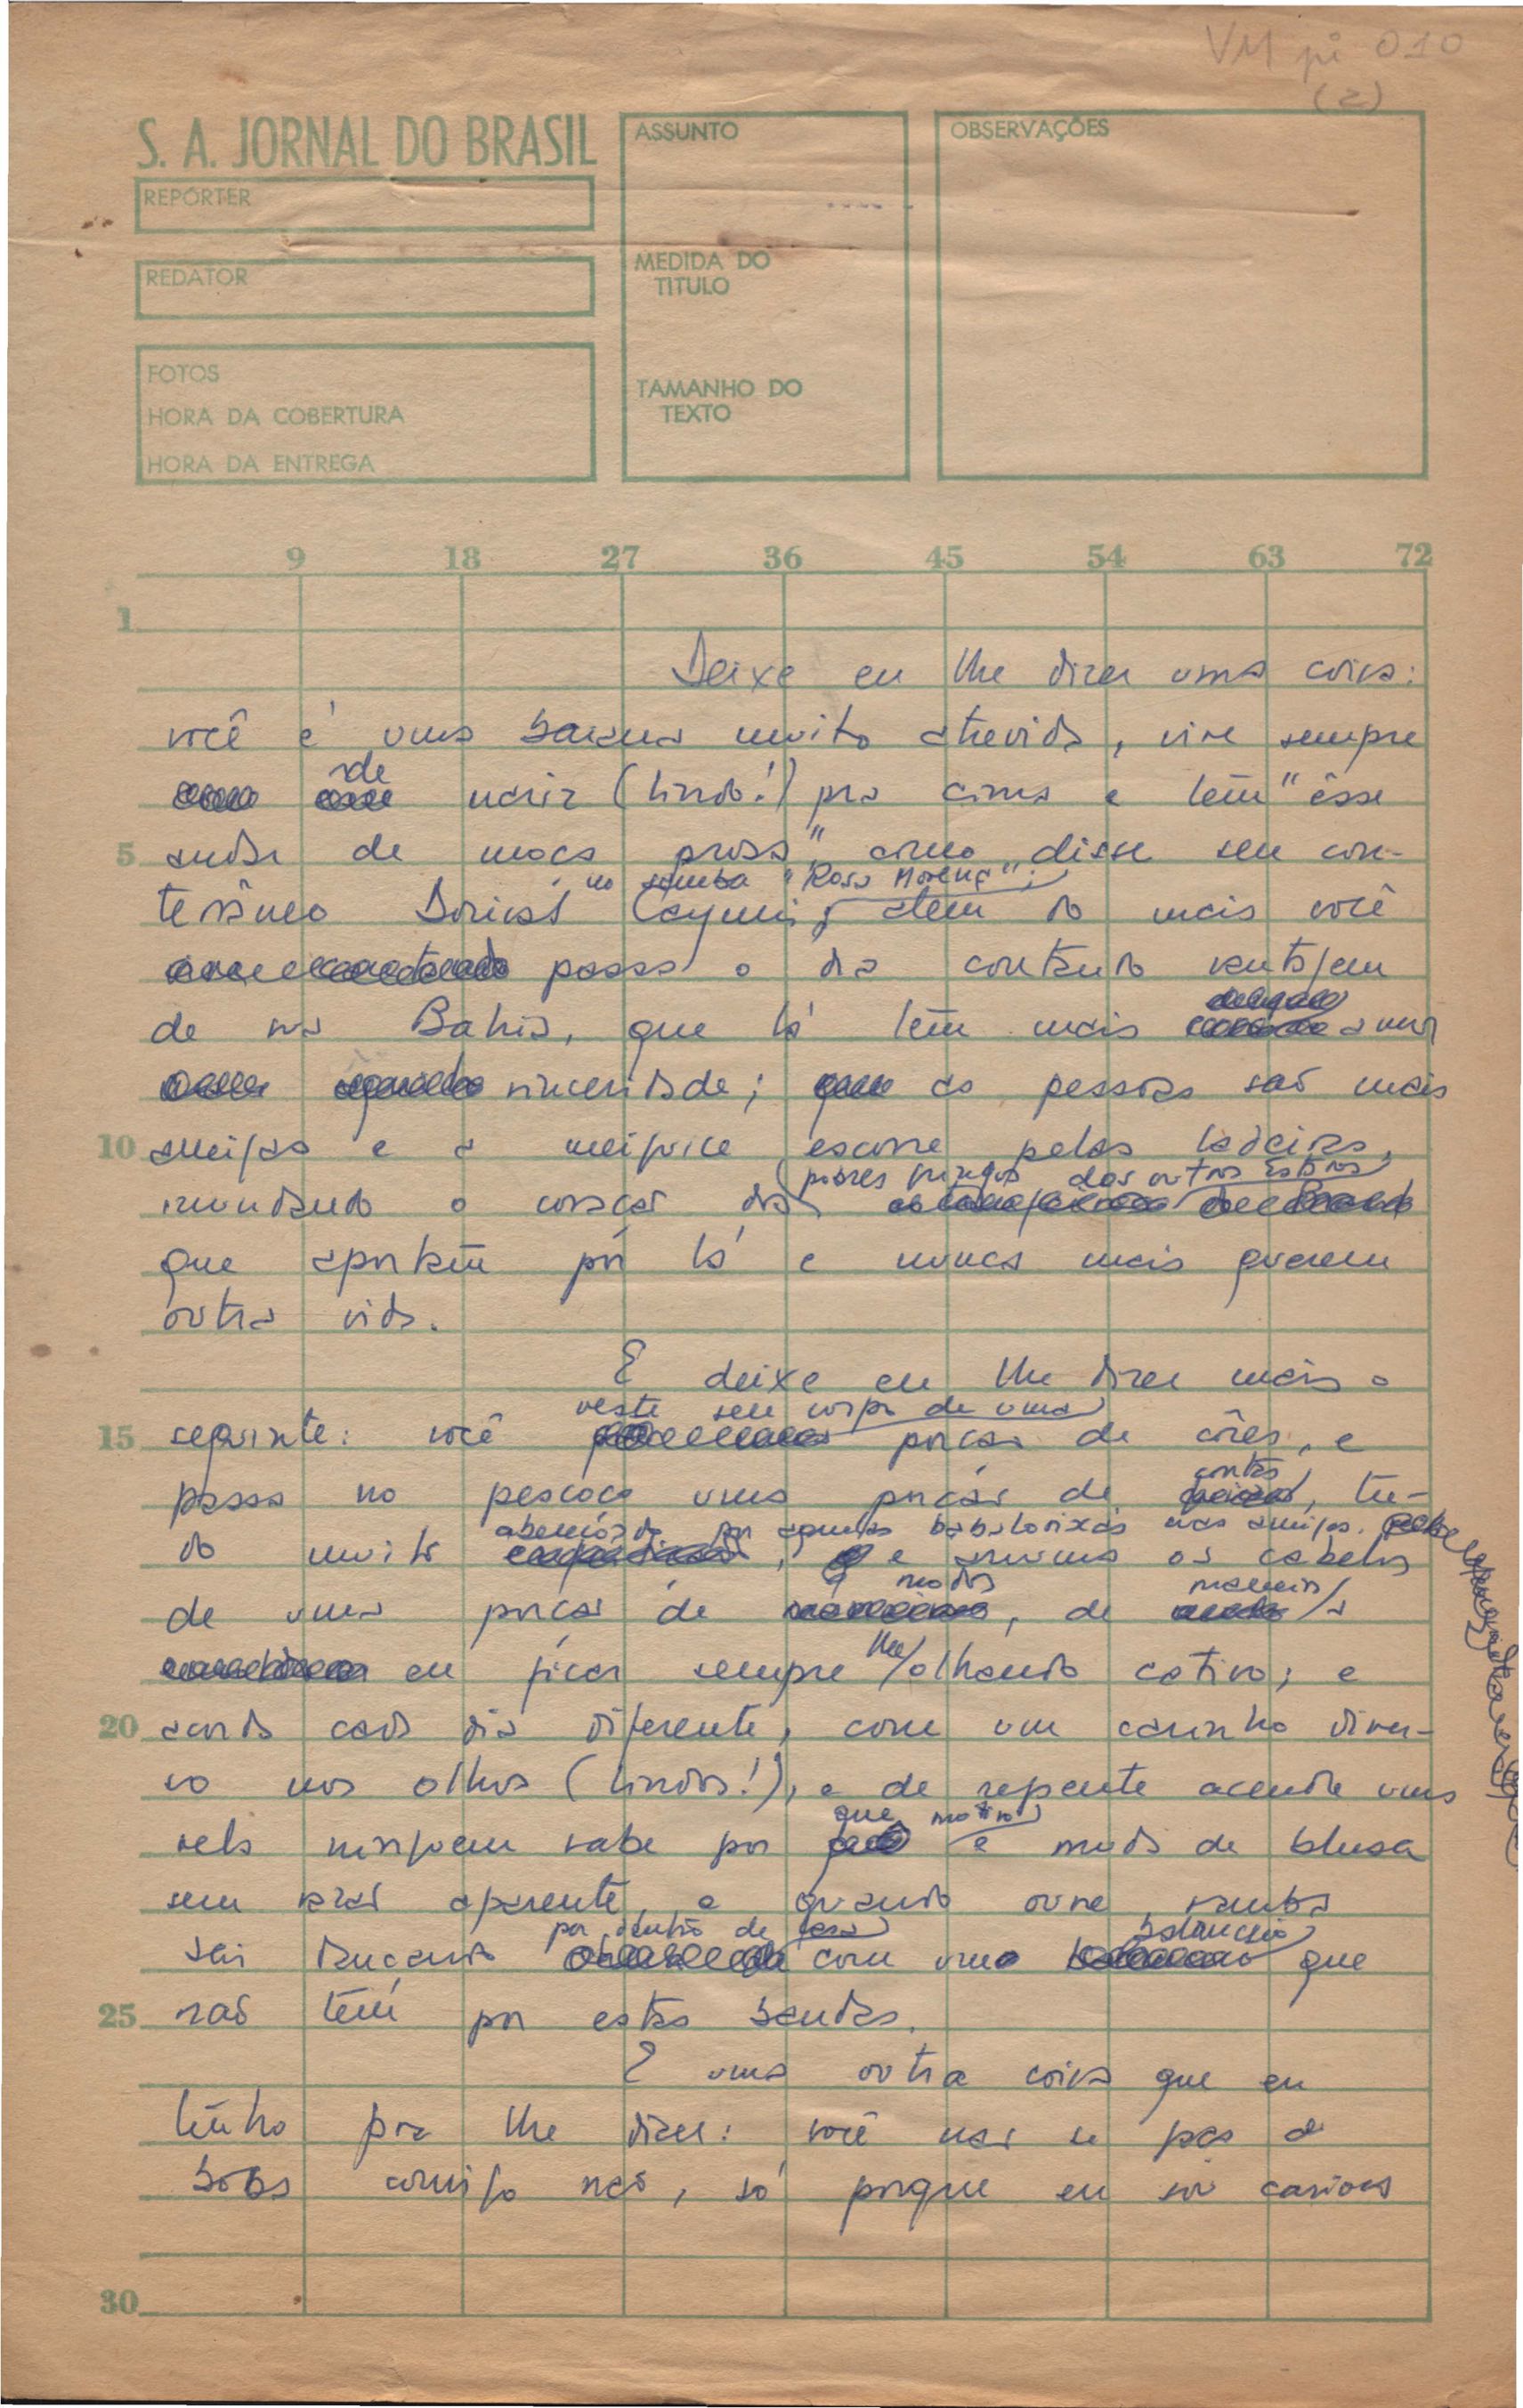 VM pi 010
(2)
S. A. JORNAL DO BRASIL
ASSUNTO
OBSERVAÇÕES
REPÓRTER
REDATOR
MEDIDA DO
TITULO
FOTOS
HORA DA COBERTURA
HORA DA ENTREGA
TAMANHO DO
TEXTO
9 18 27 36 45 54 63 72
1
Deixe eu lhe dizer uma coisa:
você é uma baiana muito atrevida, vive sempre
de
nariz (lindo!) pra cima e tem "êsse
5 andar de moça prosa", como disse seu con-
no samba "Rosa Morena";
terrâneo Dorival Caymmi, além do mais você
passa o dia contando vantagem
de sua Bahia, que lá tem mais amor
sinceridade; as pessoas são mais
10 amigas e a meiguice escorre pelas ladeiras,
pobres gringos dos outros Estados
inundando o coração dos
que aportam por lá e nunca mais querem
outra vida.
E deixe eu lhe dizer mais o
veste seu corpo de uma
15 seguinte: você porção de côres, e
contas
passa no pescoço uma porção de, tu-
abençoado por babalorixás seus amigos.
do muito, e arruma os cabelos
modos maneira
de uma porção de, de a
lhe
eu ficar sempre olhando cativo; e
20 acorda cada dia diferente, com um carinho diver-
so nos olhos (lindos!), e de repente acende uma
que motivo
vela ninguem sabe por e muda de blusa
sem razão aparente, e quando ouve samba
por dentro de casa balanceio
sai dançando com um que
25 não tem por estas bandas.
E uma outra coisa que eu
tenho pra lhe dizer: você não se faça de
boba comigo não, só porque eu sou carioca
30